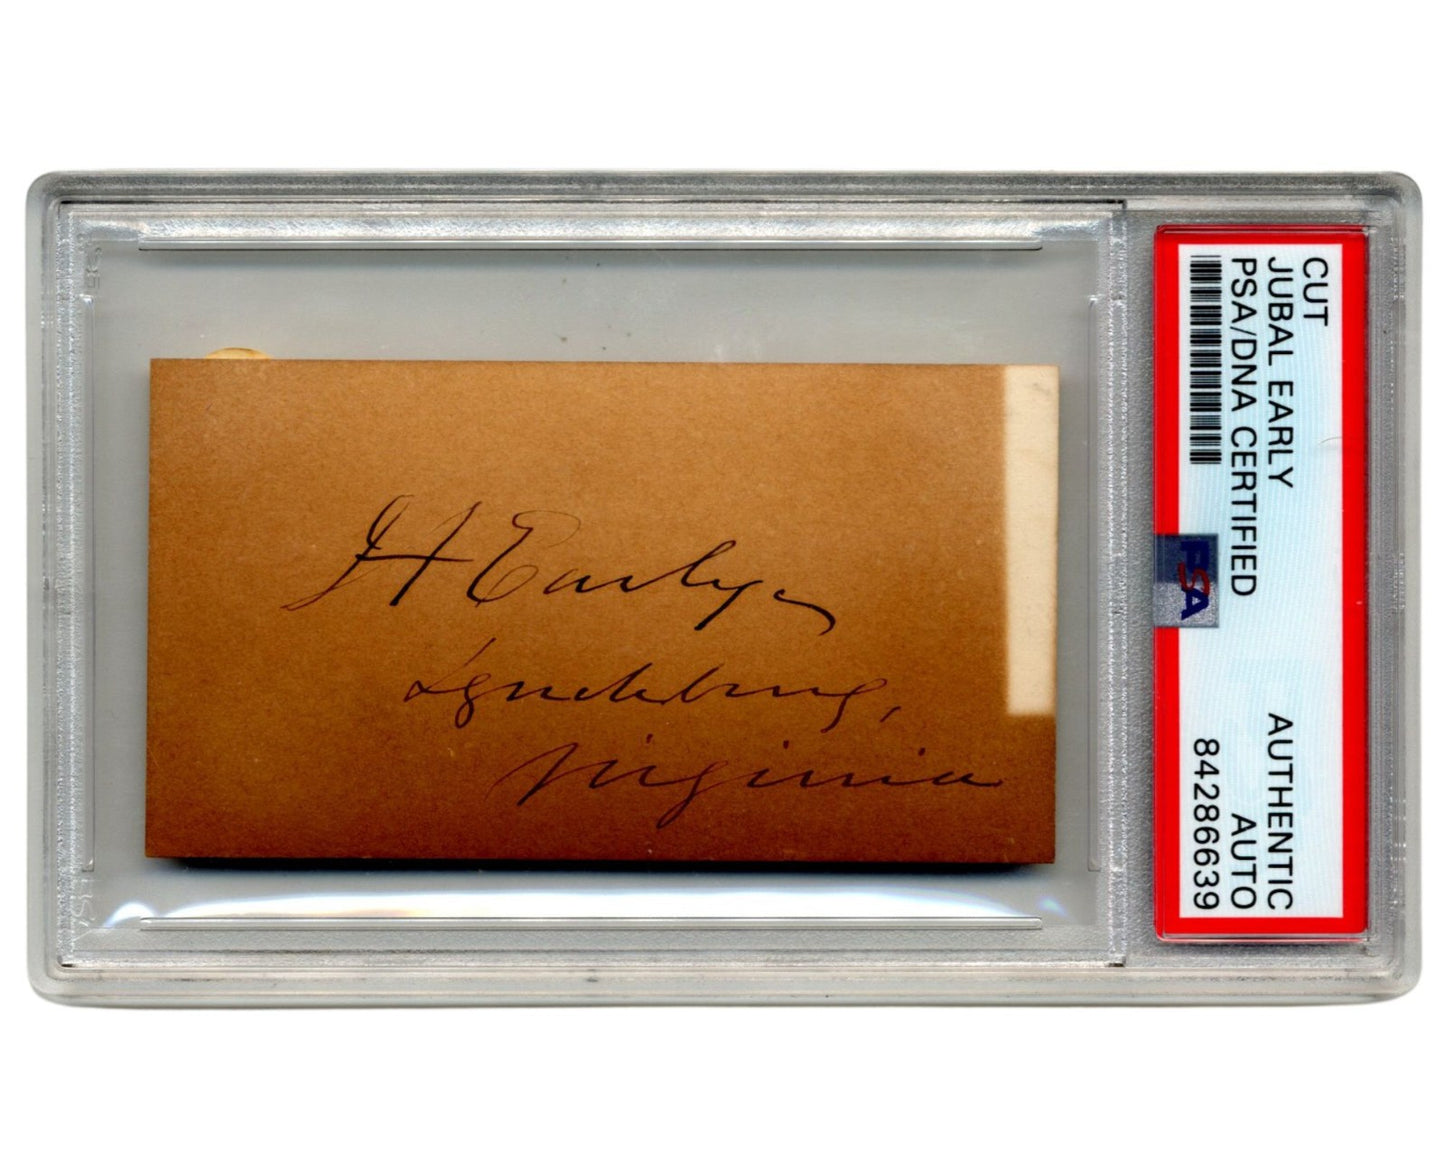 J A Early
Lynchburg,
Virginia
CUT
JUBAL EARLY
PSA/DNA CERTIFIED
AUTHENTIC
AUTO
84286639
PSA